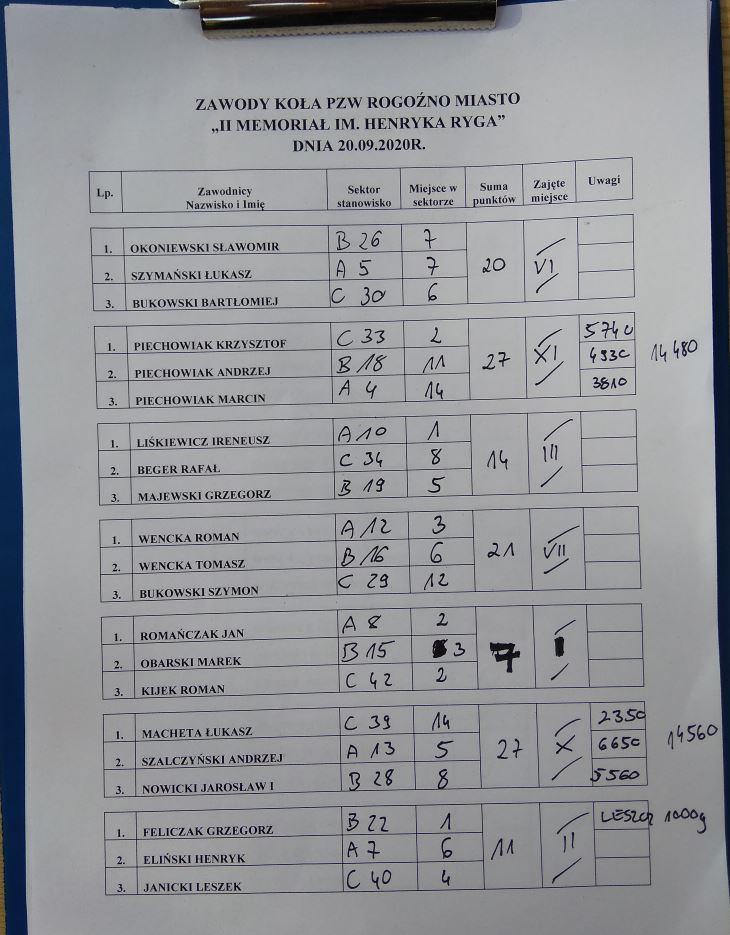 ZAWODY KOŁA PZW ROGOŹNO MIASTO
„II MEMORIAŁ IM. HENRYKA RYGA”
DNIA 20.09.2020R.
Lp. Zawodnicy Nazwisko i Imię Sektor stanowisko Miejsce w sektorze Suma punktów Zajęte miejsce Uwagi
1. OKONIEWSKI SŁAWOMIR B 26 7
2. SZYMAŃSKI ŁUKASZ A 5 7 20 VI
3. BUKOWSKI BARTŁOMIEJ C 30 6
1. PIECHOWIAK KRZYSZTOF C 33 2 5740
2. PIECHOWIAK ANDRZEJ B 18 11 27 XI 4930 14480
3. PIECHOWIAK MARCIN A 4 14 3810
1. LIŚKIEWICZ IRENEUSZ A 10 1
2. BEGER RAFAŁ C 34 8 14 III
3. MAJEWSKI GRZEGORZ B 19 5
1. WENCKA ROMAN A 12 3
2. WENCKA TOMASZ B 16 6 21 VII
3. BUKOWSKI SZYMON C 29 12
1. ROMAŃCZAK JAN A 8 2
2. OBARSKI MAREK B 15 3 7 I
3. KIJEK ROMAN C 42 2
1. MACHETA ŁUKASZ C 39 14 2350
2. SZALCZYŃSKI ANDRZEJ A 13 5 27 X 6650 14560
3. NOWICKI JAROSŁAW I B 28 8 5560
1. FELICZAK GRZEGORZ B 22 1 LESZCZ 1000g
2. ELIŃSKI HENRYK A 7 6 11 II
3. JANICKI LESZEK C 40 4